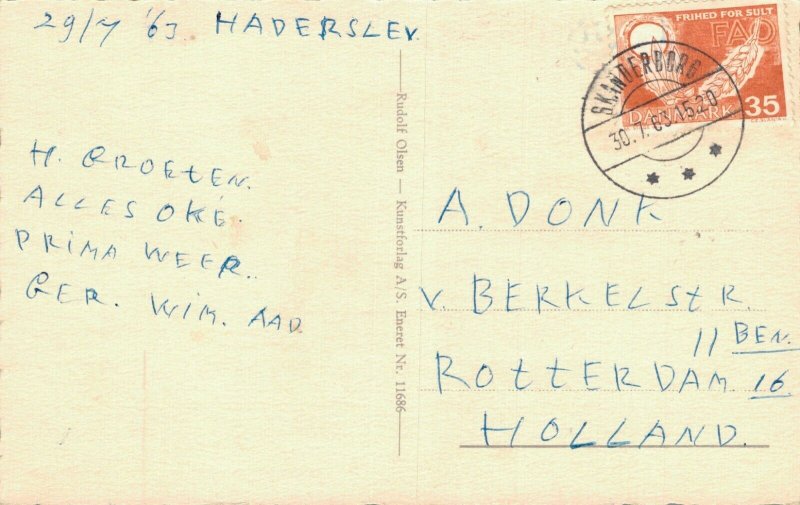 29/7 '63 HADERSLEV.
H. GROETEN.
ALLES OKÉ.
PRIMA WEER.
GER. WIM. AAD
Rudolf Olsen — Kunstforlag A/S. Eneret Nr. 11686
FRIHED FOR SULT
FAO
DANMARK 35
SKANDERBORG
30.7.63.15.20
A. DONK
v. BERKELSTR.
11 BEN.
ROTTERDAM. 16
HOLLAND.